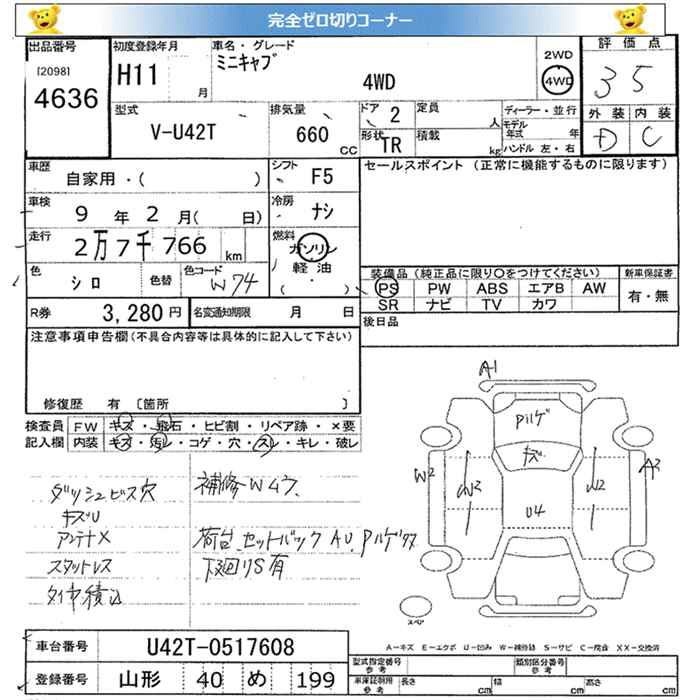 完全ゼロ切りコーナー
出品番号 初度登録年月 車名・グレード 2WD 評価点
[2098] H11 月 ミニキャブ 4WD 4WD 35
4636
型式 排気量 ドア 定員 ディーラー・並行 外装 内装
V-U42T 660 CC 2 人 モデル年式 年 D C
形状 TR 積載 kg ハンドル 左・右
車歴 自家用・( ) シフト F5 セールスポイント (正常に機能するものに限ります)
車検 9 年 2 月( 日) 冷房 ナシ
走行 2万7千766 km 燃料 ガソリン 軽油 ( ・ )
色 シロ 色替 色コード W74 装備品(純正品に限り○をつけてください) 新車保証書
PS PW ABS エアB AW 有・無
SR ナビ TV カワ
R券 3,280 円 名変通知期限 月 日 後日品
注意事項申告欄(不具合内容等は具体的に記入して下さい)
修復歴 有 〔箇所 〕
検査員 FW キズ・飛石・ヒビ割・リペア跡・×要
記入欄 内装 キズ・汚レ・コゲ・穴・スレ・キレ・破レ
ダッシュビス穴 補修Wムラ
キズU
アンテナX 荷台、セットバックAU、Pハゲ
スタットレス 下廻りS有
タイヤ積込
A1
Pハゲ
キズ
W2 W2 U2 A2
U4
スペア
A-キズ E-エクボ U-凹み W-補修跡 S-サビ C-腐食 XX-交換済
車台番号 U42T-0517608
登録番号 山形 40 め 199
型式指定番号 参考 類別区分番号 参考
車庫証明用 参考 長さ cm 幅 cm 高さ cm